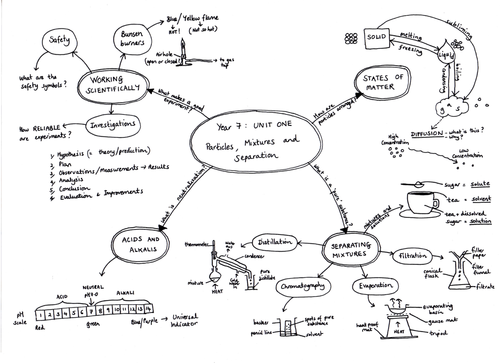 Year 7: UNIT ONE
Particles, Mixtures and
Separation
What makes a good
experiment?
WORKING
SCIENTIFICALLY
Safety
What are the
safety symbols?
Bunsen
burners
Blue/Yellow flame
HOT!
(Not so hot)
Airhole
(open or closed)
to gas
tap
Investigations
How RELIABLE
are experiments?
1) Hypothesis (= theory/prediction)
2) Plan
3) Observations/measurements → Results
4) Analysis
5) Conclusion
6) Evaluation + Improvements
How are
particles arranged?
STATES OF
MATTER
SOLID
melting
freezing
subliming
liquid
gas
DIFFUSION - what is this?
why?
High
Concentration
Low
Concentration
What is neutralisation?
ACIDS AND
ALKALIS
ACID
NEUTRAL
ALKALI
pH
scale
1 2 3 4 5 6 7 8 9 10 11 12 13 14
Red
green
Blue/Purple → Universal
Indicator
What is a 'pure' substance?
SEPARATING
MIXTURES
mixtures and
solutions
sugar = solute
tea = solvent
tea + dissolved
sugar = solution
Distillation
thermometer
condenser
mixture
HEAT
pure
Chromatography
beaker
pencil line
spots of pure
substance
solvent
Evaporation
evaporating
basin
gauze mat
tripod
heat proof mat
HEAT
Filtration
filter
paper
filter
funnel
filtrate
conical
flask